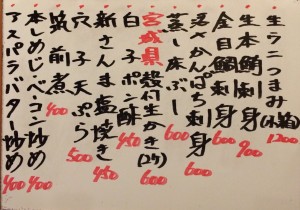 生うにつまみ(小箱)1200
生本鮪刺身 900
金目鯛刺身 600
活かんぱち刺身 600
蒸し床ぶし 600
宮城県 殻付生かき(2ケ) 600
白子ポン酢 450
新さんま塩焼き 450
穴子天ぷら 500
筑前煮 400
本しめじ・ベーコン炒め 400
アスパラバター炒め 400